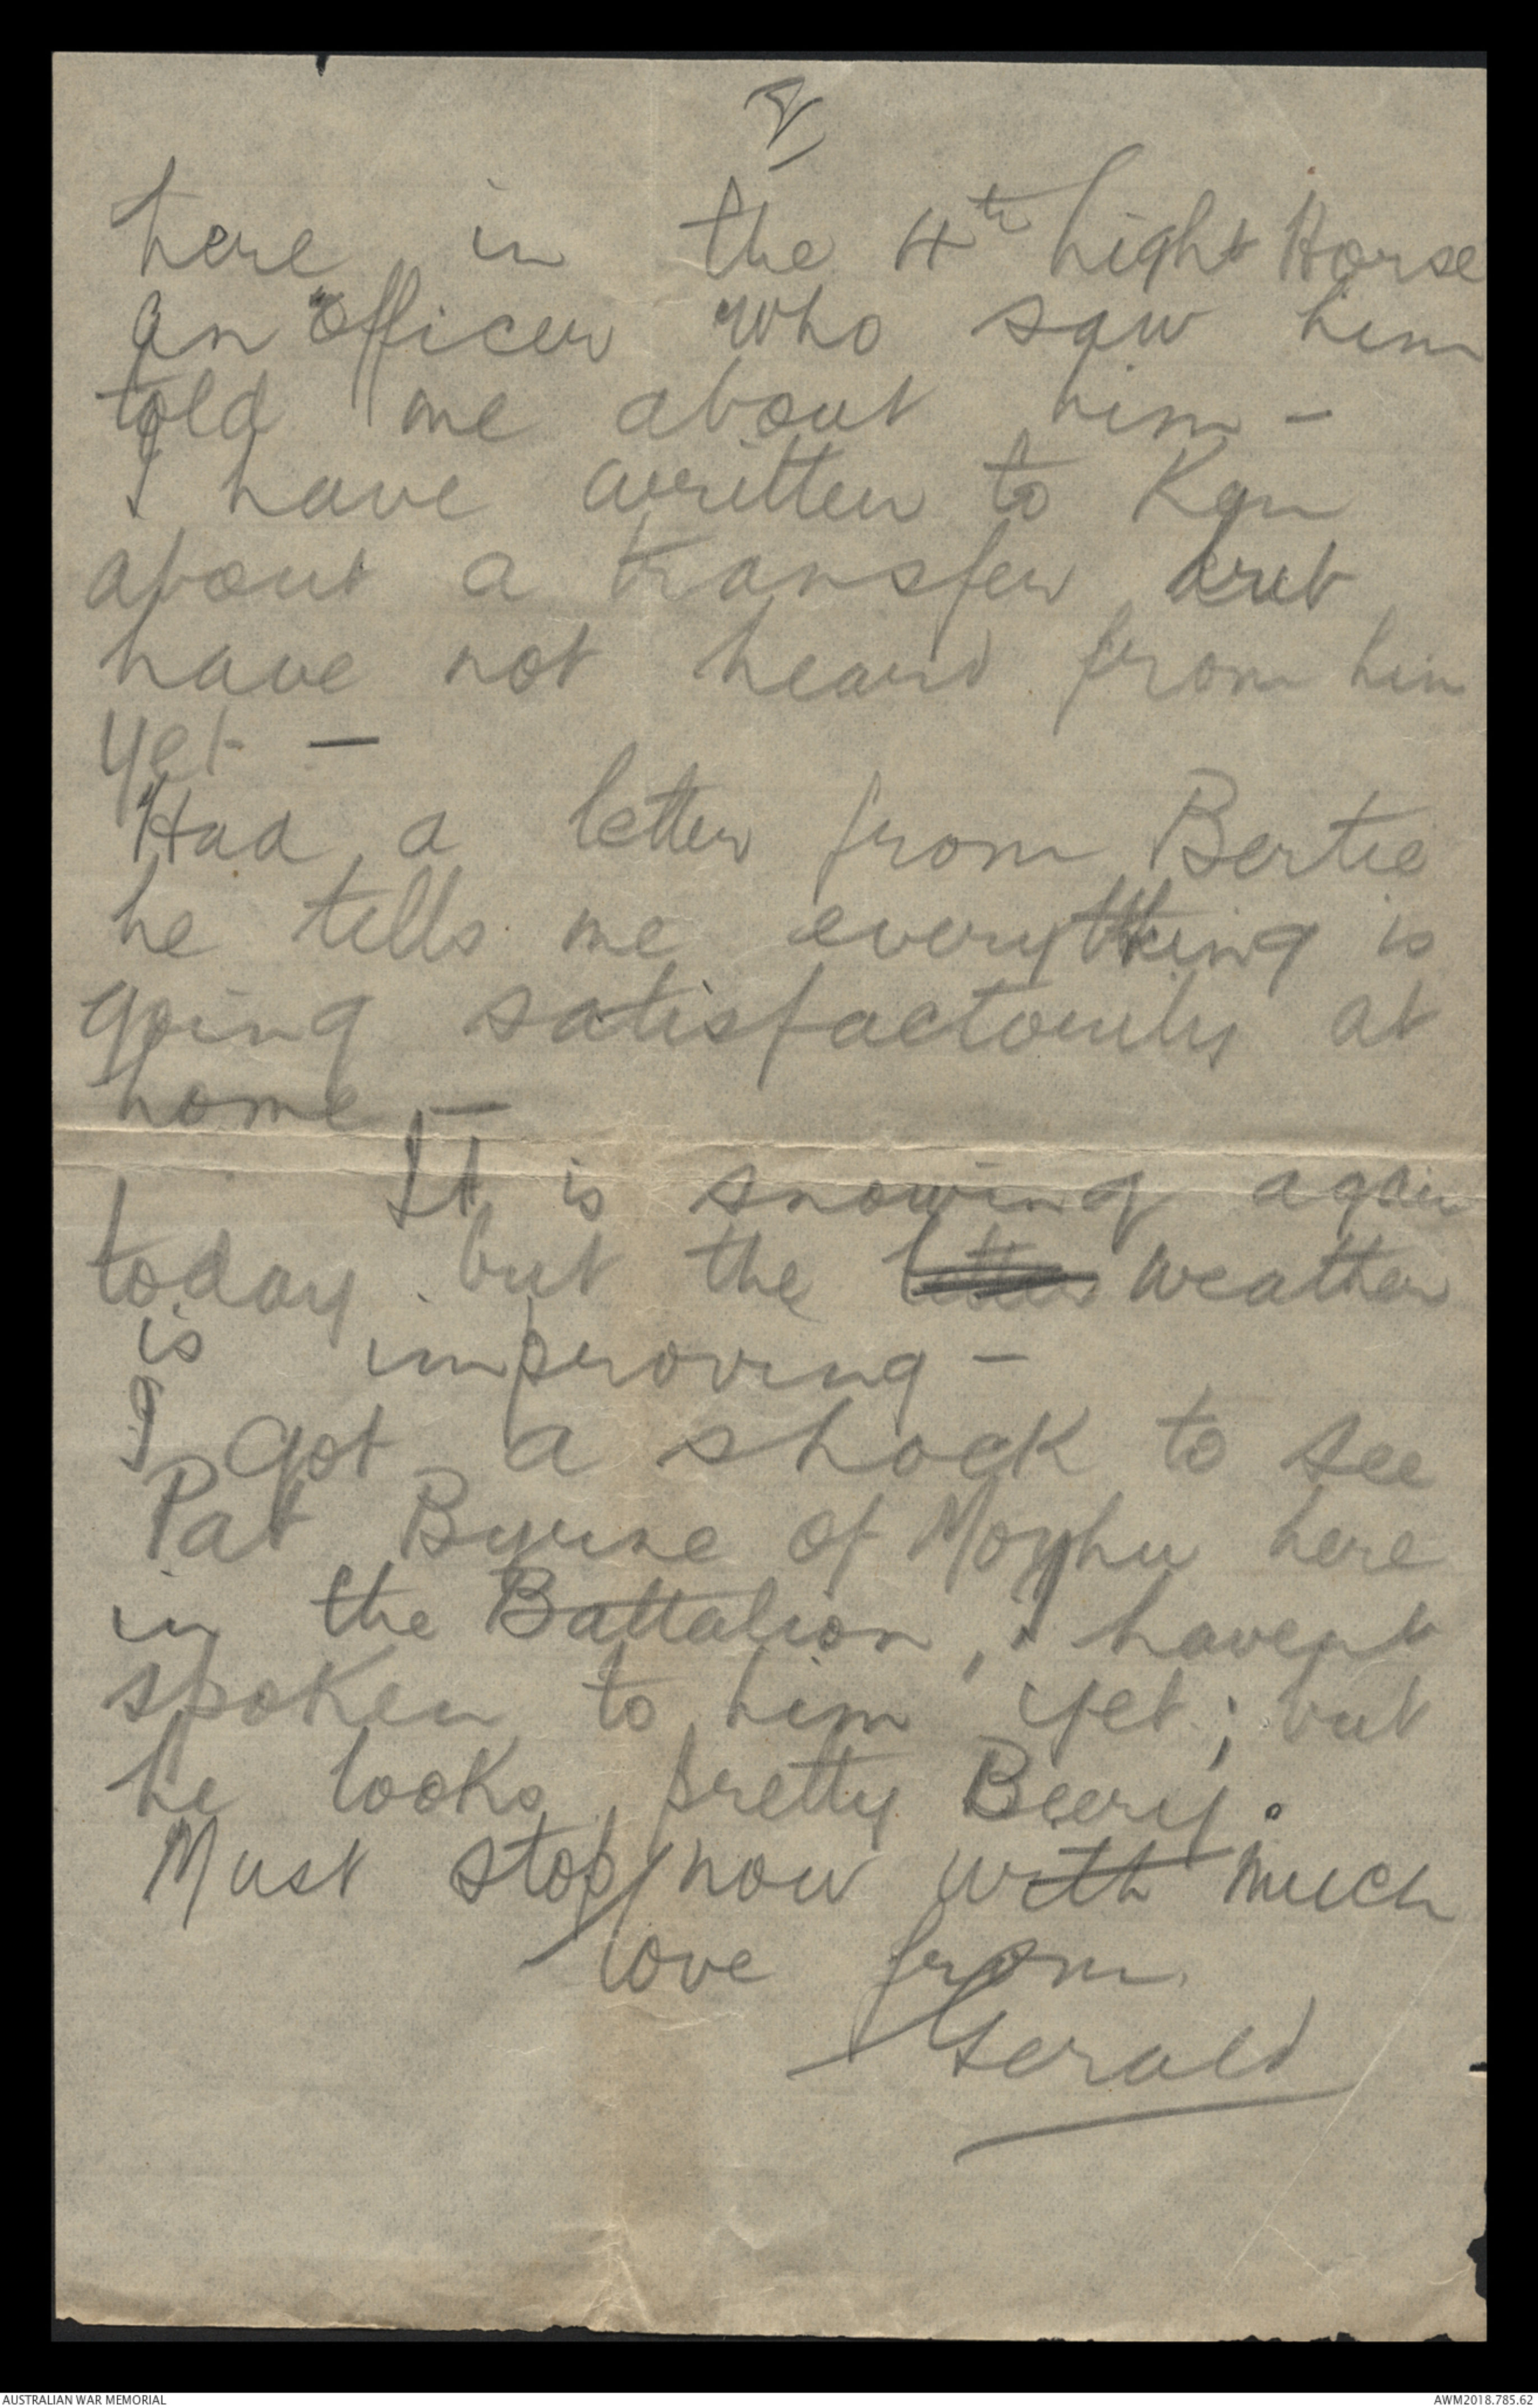 here in the 4th Light Horse
an officer who saw him
told me about him -
I have written to Ken
about a transfer but
have not heard from him
yet -
Had a letter from Bertie
he tells me everything is
going satisfactorily at
home -
It is snowing again
today but the weather
is improving -
I got a shock to see
Pat Byrne of Moyhu here
in the Battalion, I havent
spoken to him yet; but
he looks pretty Beery.
Must stop now with much
love from
Gerald
AUSTRALIAN WAR MEMORIAL
AWM2018.785.62